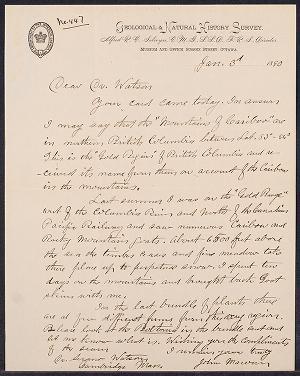 No. 447
Geological & Natural History Survey.
Alfred R. C. Selwyn, C.M.G., LL.D., F.R.S., Director.
Museum and Office Sussex Street, Ottawa.
Jan. 3d 1890
Dear Dr. Watson
Your card came today. In answer
I may say that the "Mountains of Cariboo" are
in northern British Columbia between Lat. 53°-
This is the "Gold Region" of British Columbia and re-
ceived its name from them on account of the Caribou
in the mountains.
Last summer I was on the "Gold Range"
west of the Columbia River and North of the Canadian
Pacific Railway and saw numerous Caribou and
Rocky Mountain goats. About 6500 feet above
the sea the timber ceases and fine meadows take
their place up to perpetual snow. I spent ten
days on the mountains and brought back Good
plants with me.
In the last bundle of plants there
are a few different forms from this very region.
Please look at the in the bundle and
let me know what is. Wishing you the compliments
of the season
I remain yours truly
Dr. Sereno Watson John Macoun
Cambridge Mass.